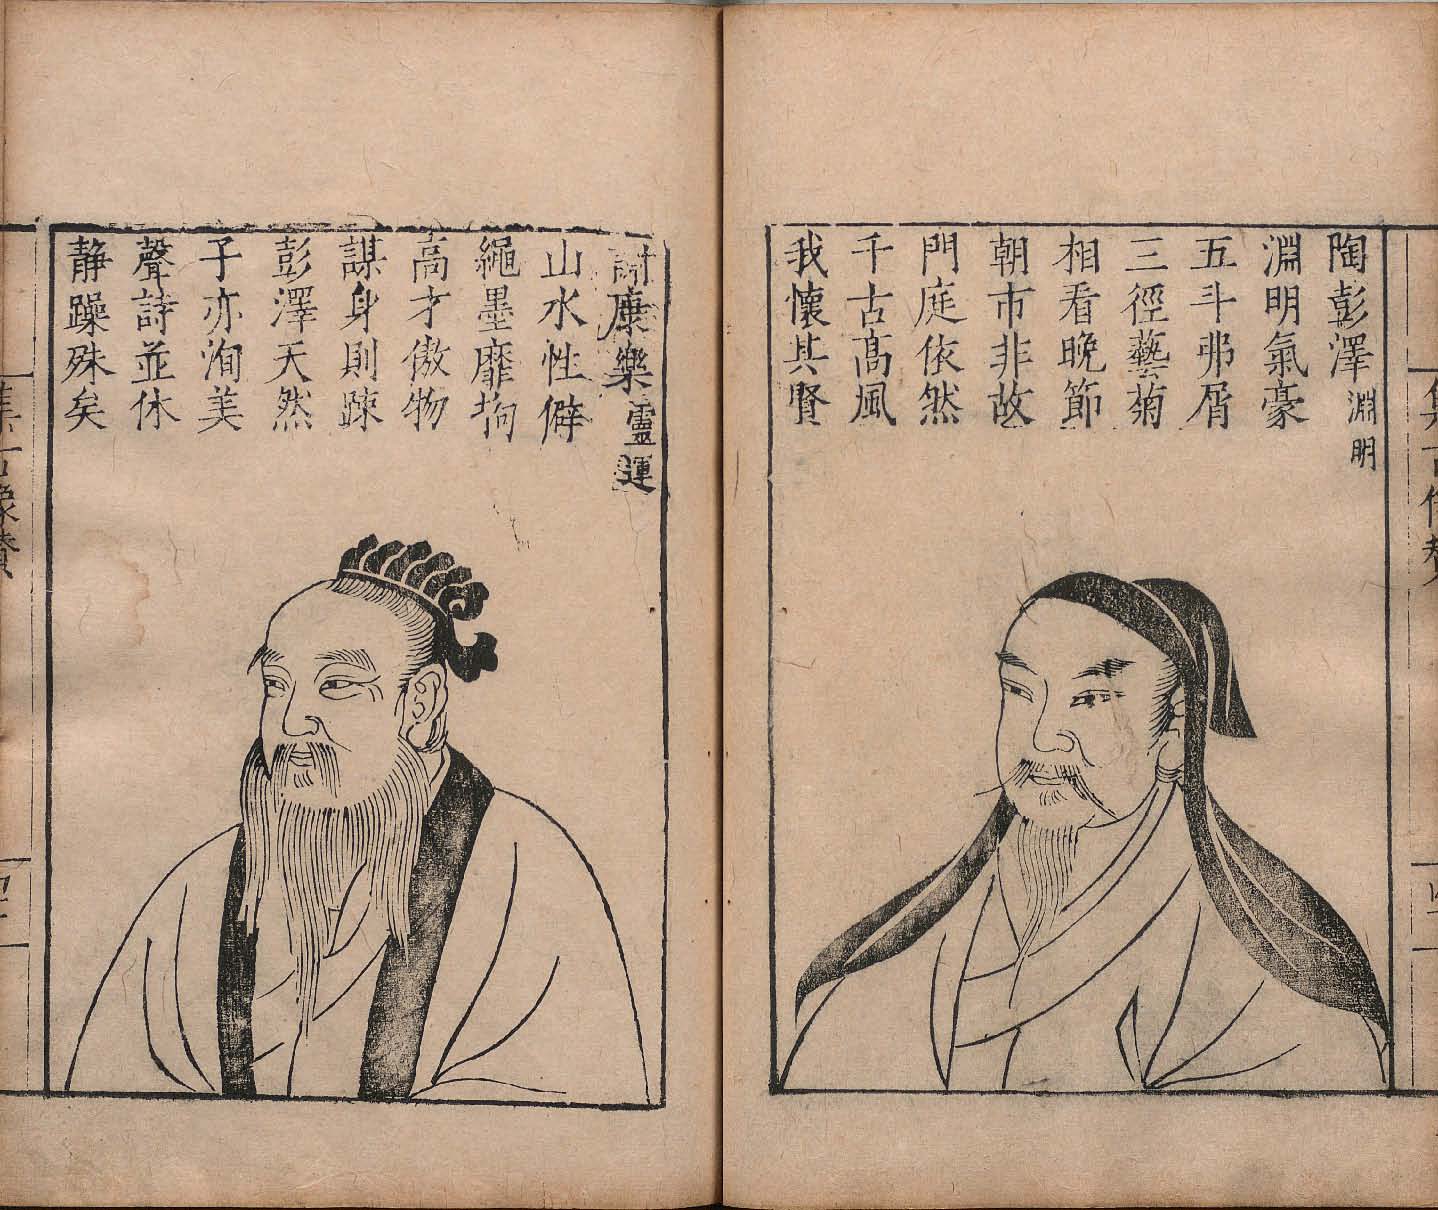 陶彭澤淵明
淵明氣豪
五斗弗屑
三徑藝菊
相看晚節
朝市非故
門庭依然
千古髙風
我懷其賢
謝康樂靈運
山水性僻
繩墨靡拘
高才傲物
謀身則疎
彭澤天然
子亦洵美
聲詩並休
静躁殊矣
集古像贊